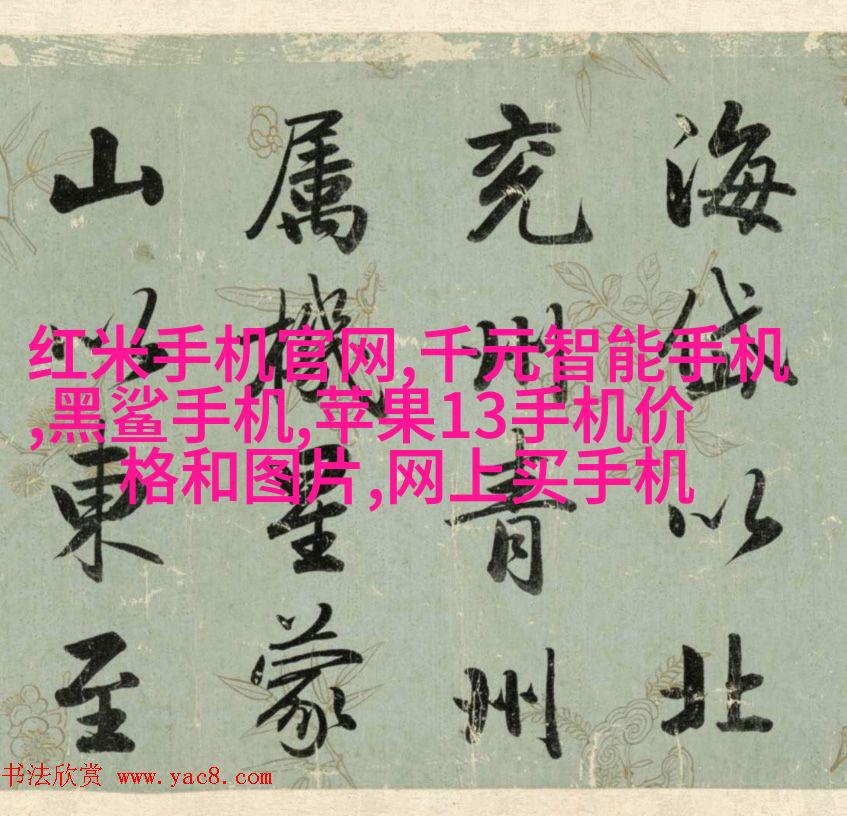 海岱以北
兖州青州
属機星蒙
山以東至
红米手机官网,千元智能手机
,黑鲨手机,苹果13手机价
格和图片,网上买手机
书法欣赏 www.yac8.com